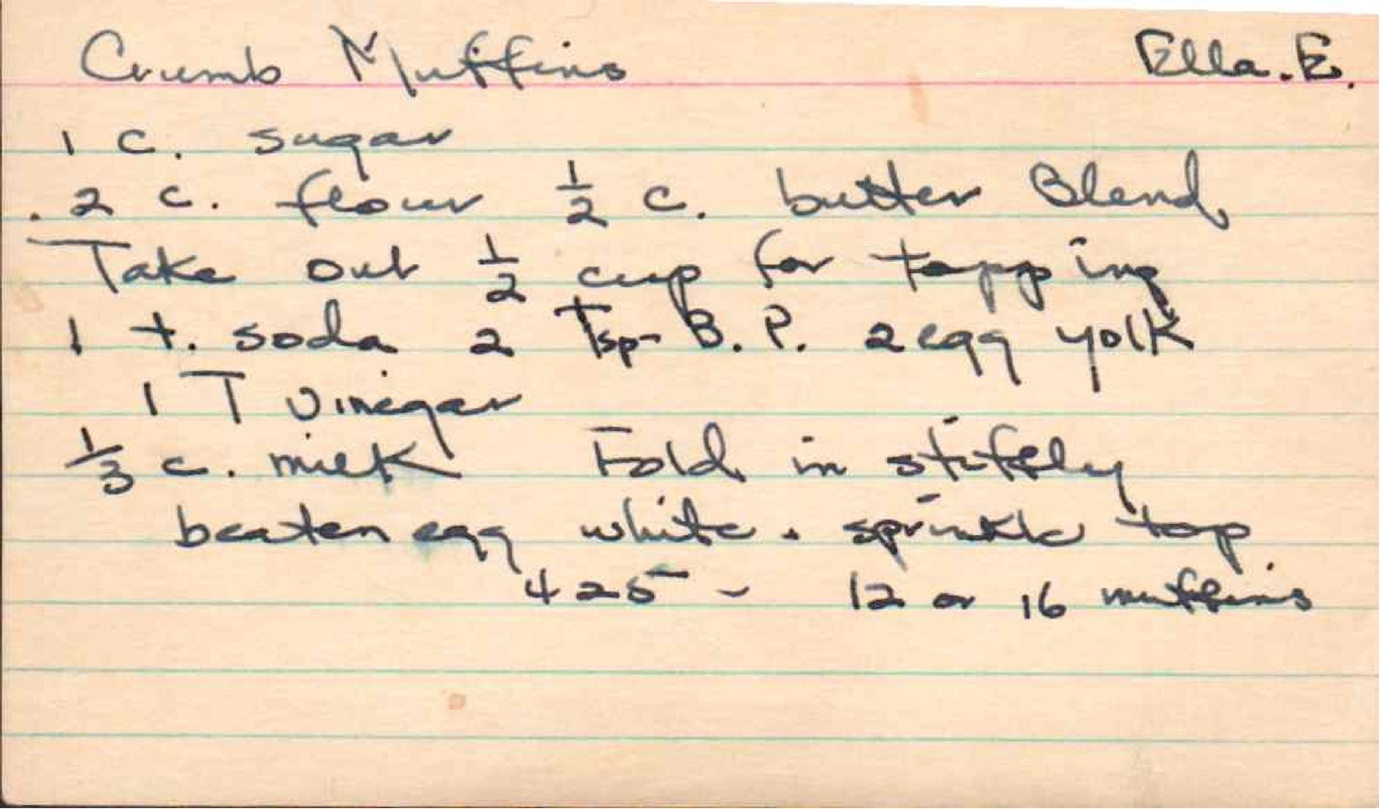 Crumb Muffins Ella.E.
1 c. sugar
2 c. flour 1/2 c. butter Blend
Take out 1/2 cup for topping
1 t. soda 2 Tsp- B.P. 2 egg yolk
1 T vinegar
1/3 c. milk Fold in stiffly
beaten egg white. sprinkle top
425 - 12 or 16 muffins